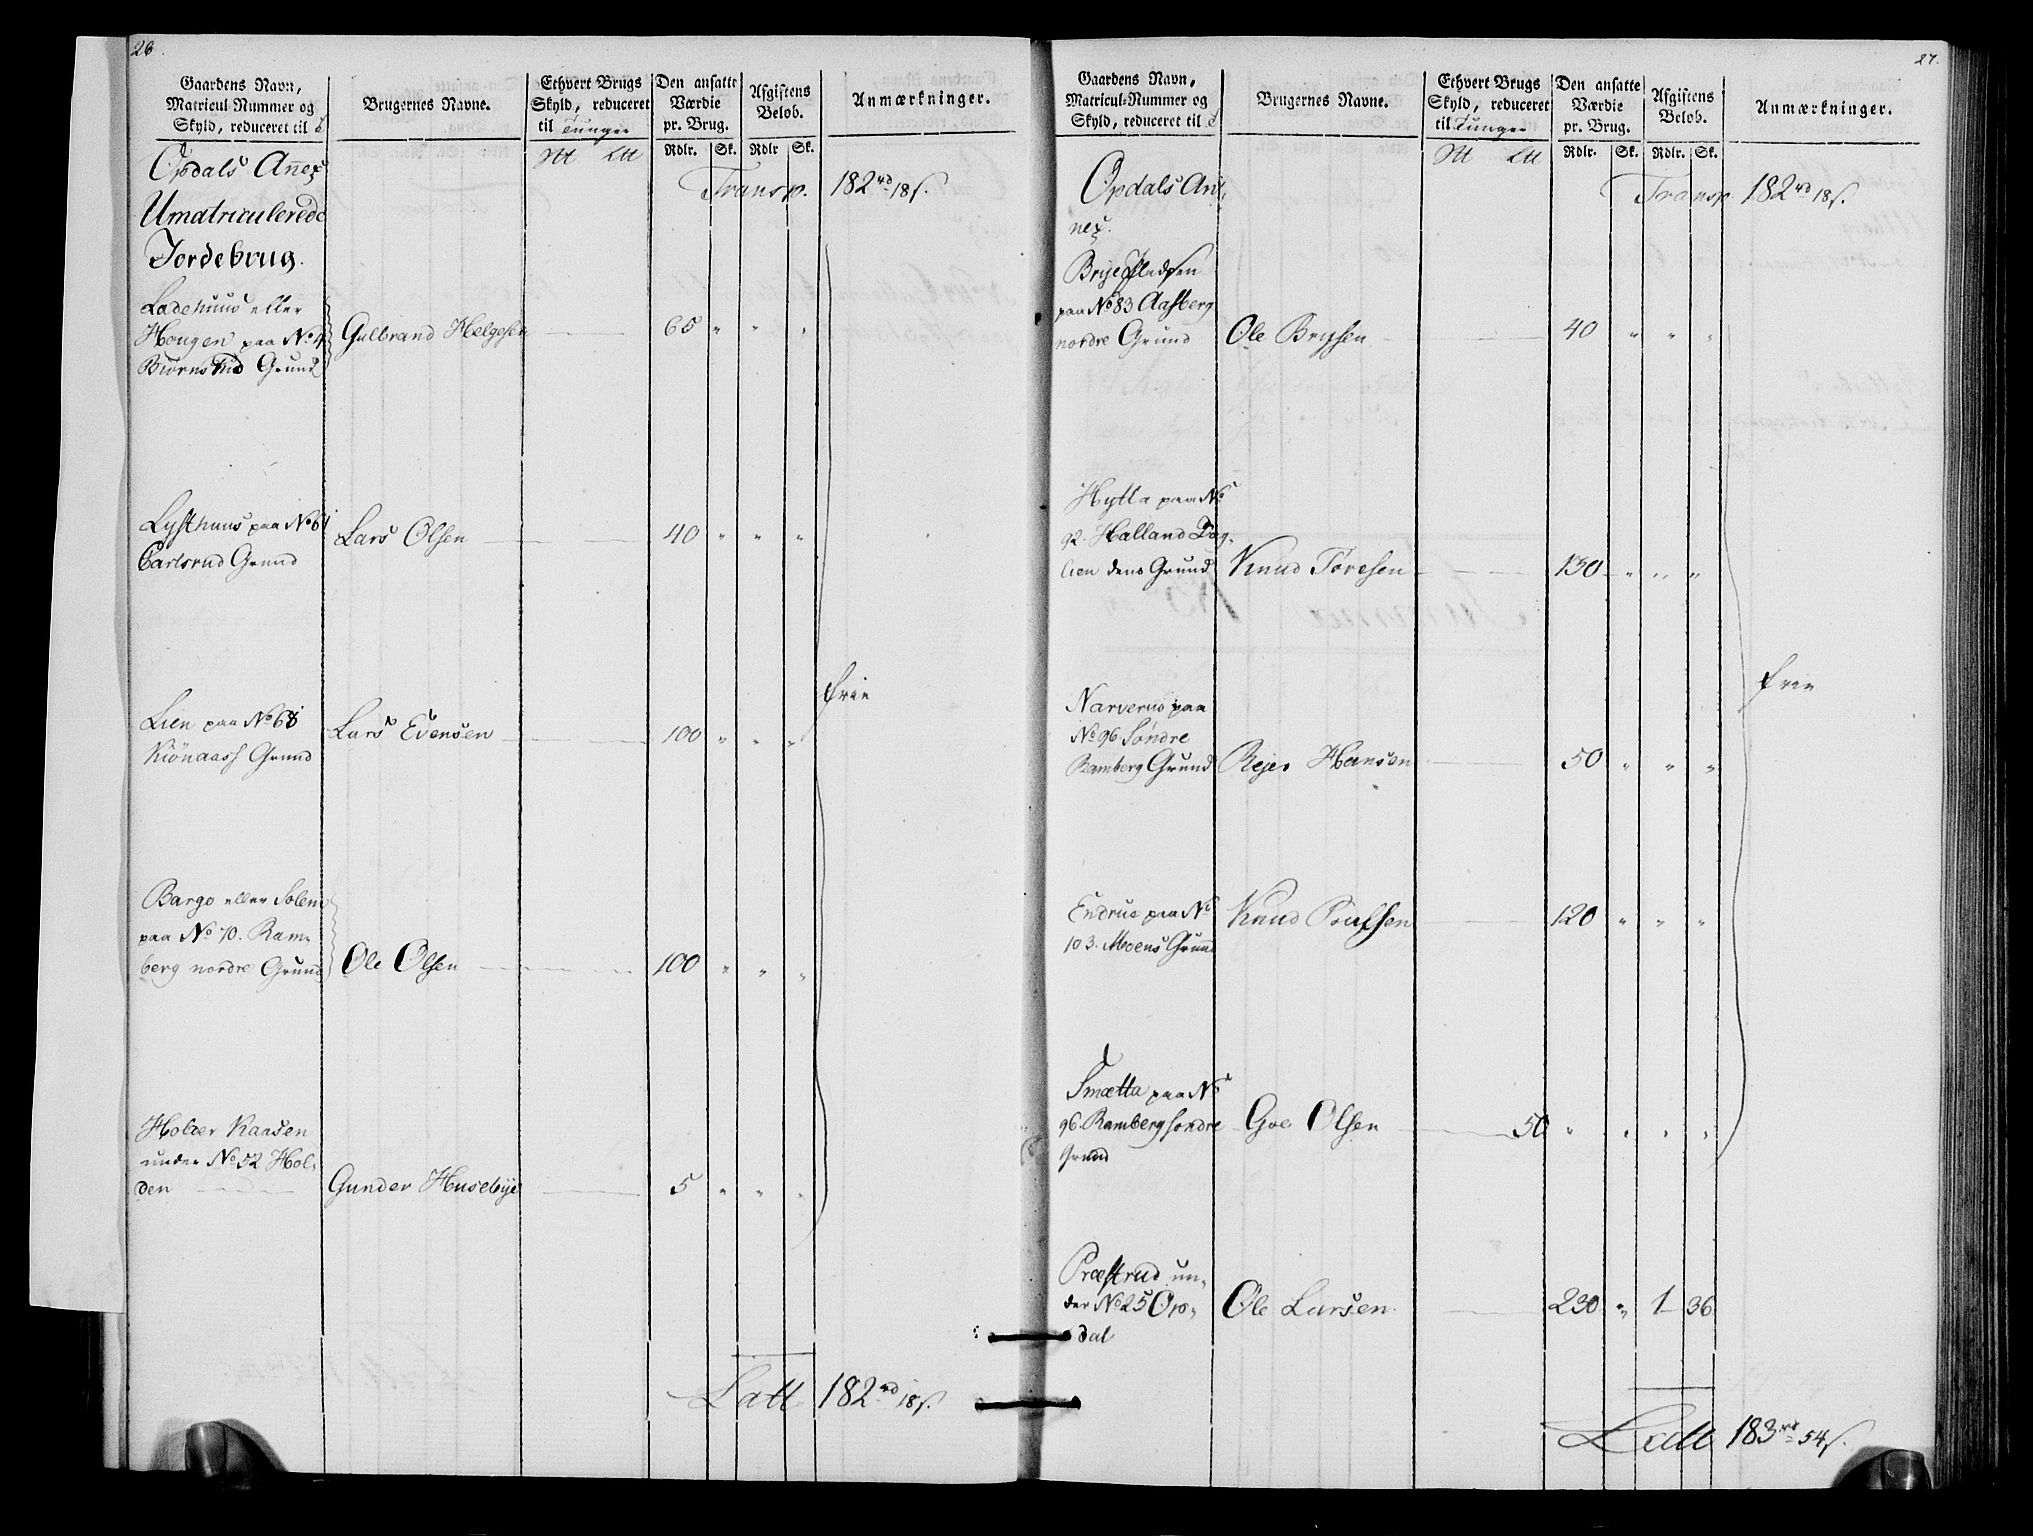 26.
Gaardens Navn,
Matricul-Nummer og
Skyld, reduceret til
Brugernes Navne.
Ethvert Brugs
Skyld, reduceret
til Tunger
Den ansatte
Værdie
pr. Brug.
Afgiftens
Belob.
Anmærkninger.
Rdlr. Sk. Rdlr Sk.
Opdals Anex
Transp. 182 rd 18 s.
Umatriculerede
Jordebrug.
Ladehuus eller
Hougen paa No 4 Gulbrand Helgesen 65 " " "
Biørnstud Grund
Lysthuus paa No 61 Lars Olsen 40 " " "
Carlsrud Grund
frie
Lien paa No 68 Lars Evensen 100 " " "
Kiönaass Grund
Bargo eller Solem
paa No 70. Ram-
berg nordre Grund Ole Olsen 100 " " "
Holder Kaasen
under No 52 Hol-
den Gunder Husebye 5 " " "
Latt 182 rd 18 s.
27.
Gaardens Navn,
Matricul-Nummer og
Skyld, reduceret til
Brugernes Navne.
Ethvert Brugs
Skyld, reduceret
til Tunger
Den ansatte
Værdie
pr. Brug.
Afgiftens
Belob.
Anmærkninger.
Rdlr. Sk. Rdlr. Sk.
Opdals An-
nex.
Transp. 182 rd 18 s.
paa No 83 Aasberg
nordre Grund Ole 40 " " "
Hytta paa No
92. Halland Dag-
lien dens Grund Knud Toresen 130 " " "
frie
Narverud paa
No 96 Søndre
Ramberg Grund Rejer Hansen 50 " " "
Endrue paa No Knud Poulsen 120 " " "
103. Moens Grund
Smætta paa No
96. Ramberg søndre Goe Olsen 50 " " " "
Grund
Præstrud un-
der No 25 Op- Ole Larsen 230 " 1 36
dal
Latt 183 rd 54 s.